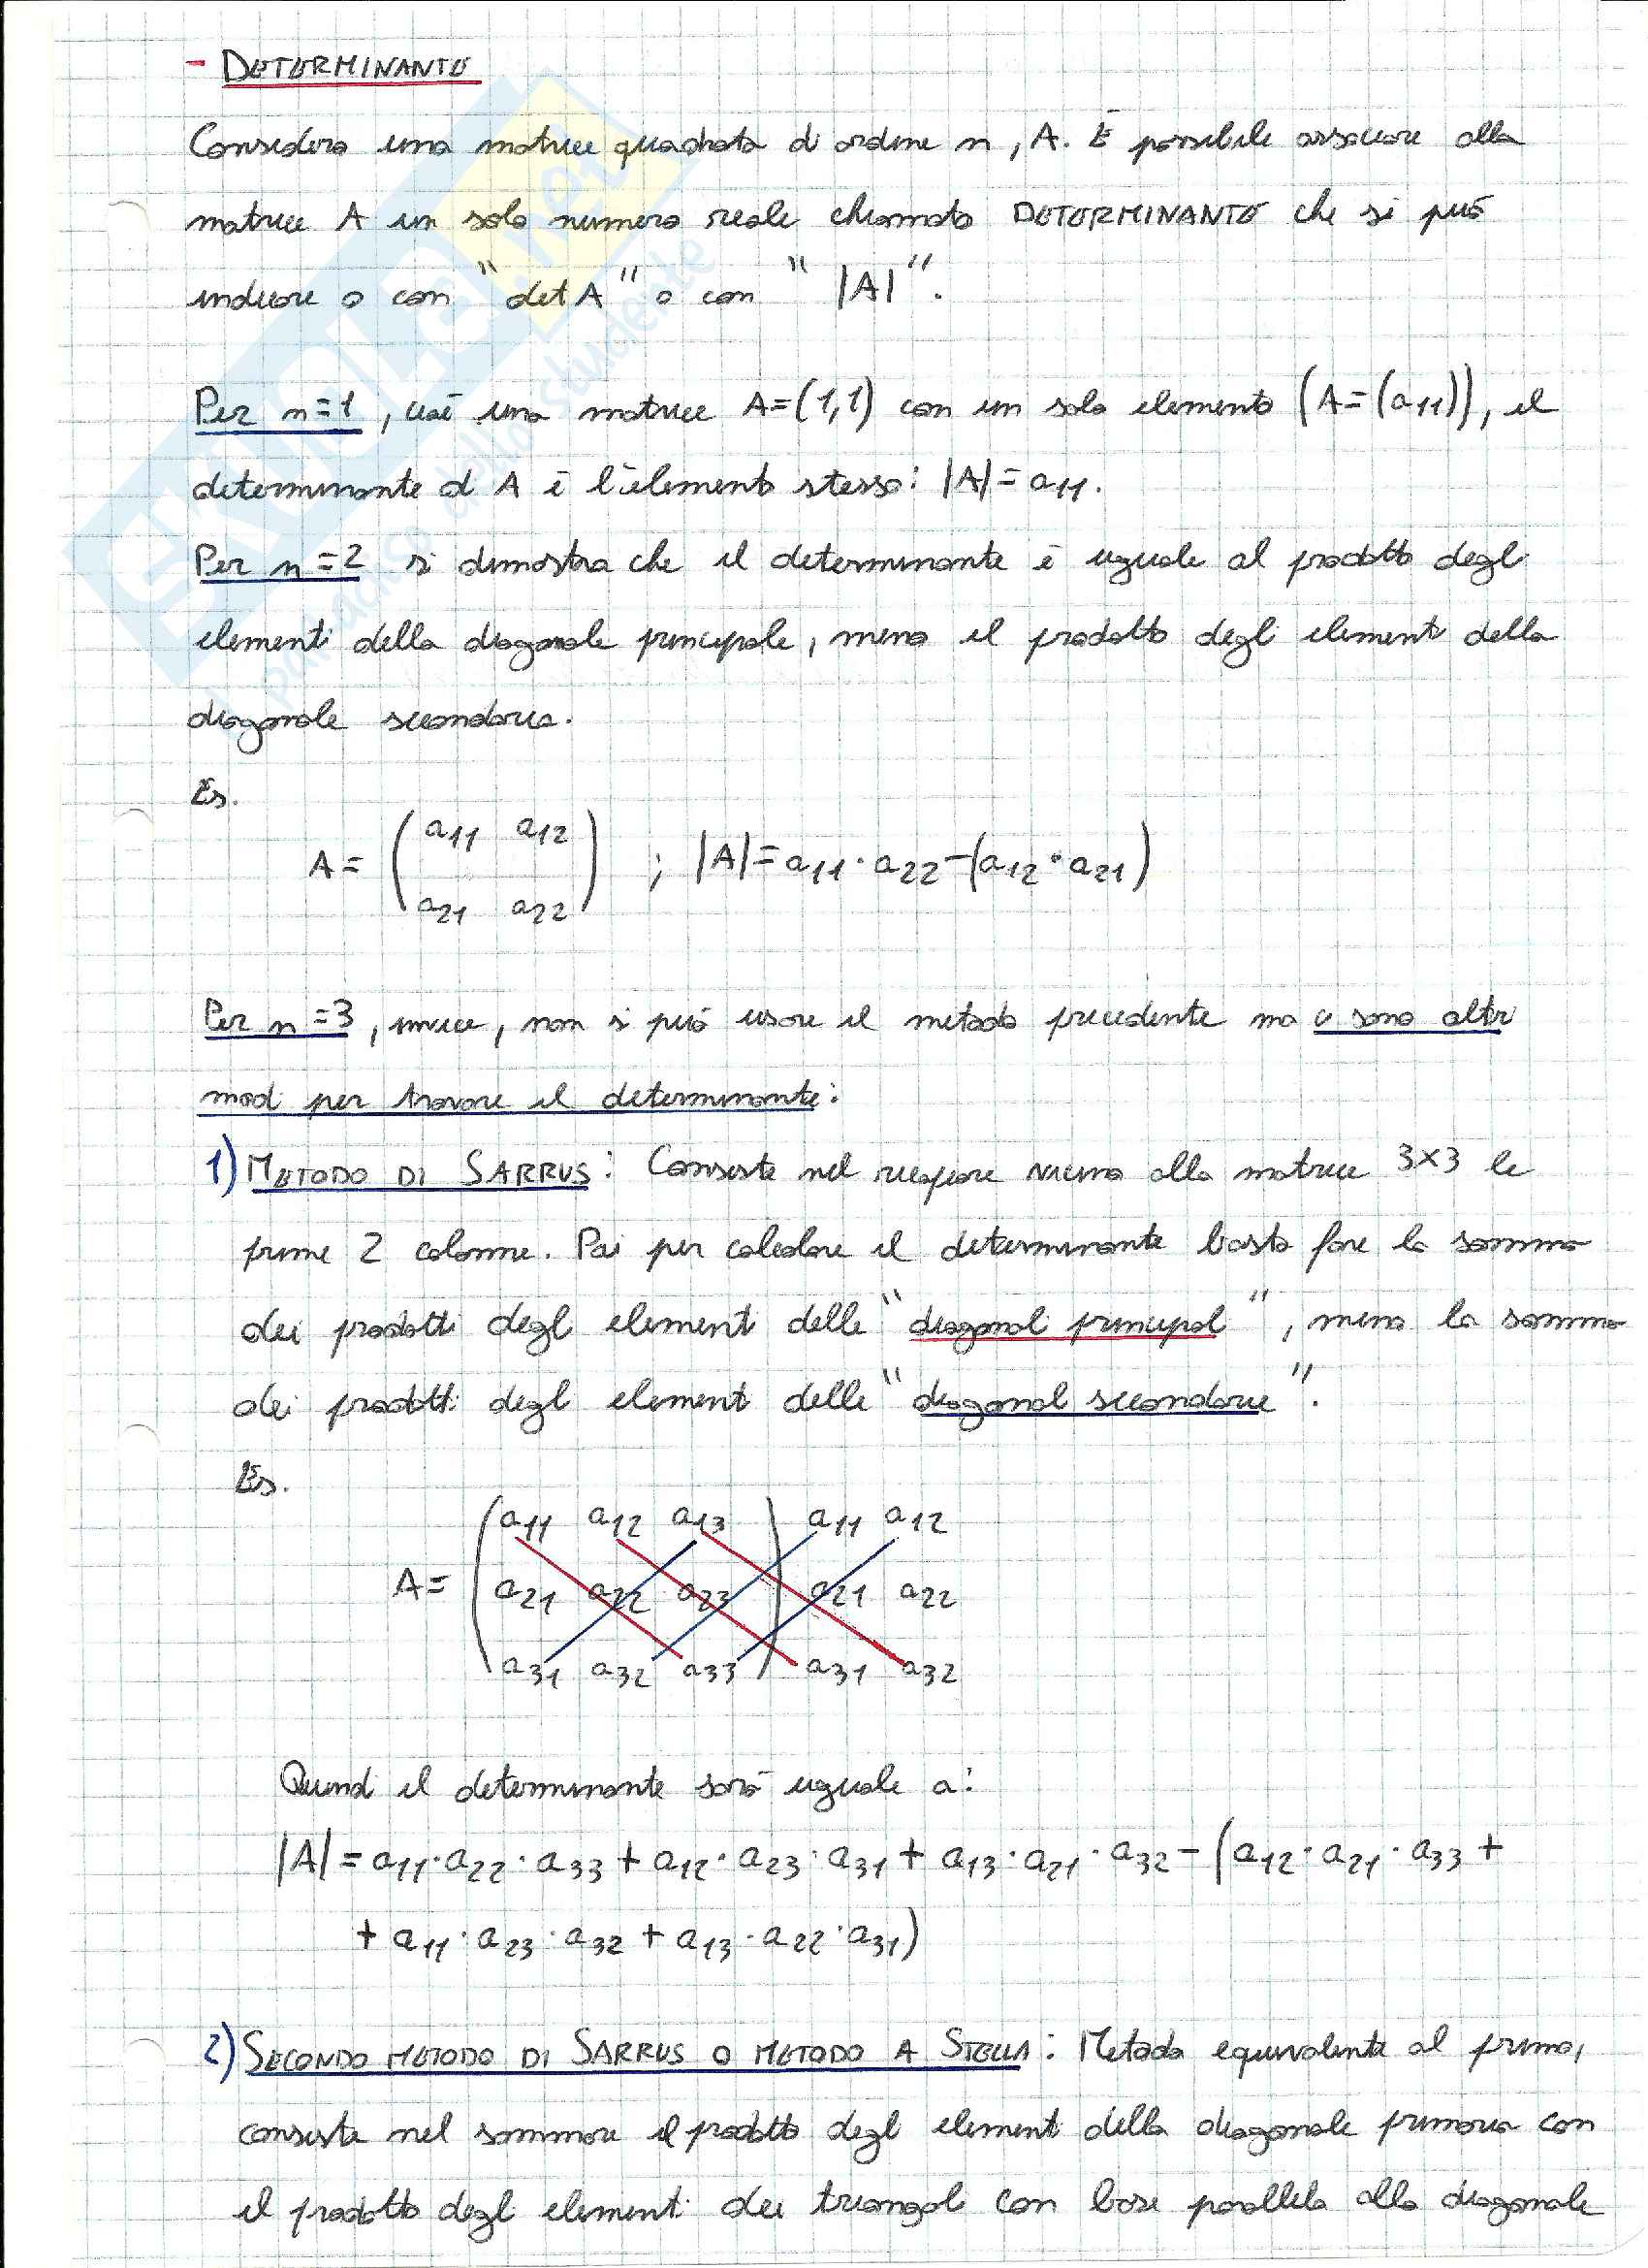 - DETERMINANTE
Considero una matrice quadrata di ordine n, A. È possibile associare alla
matrice A un solo numero reale chiamato DETERMINANTE che si può
indicare o con "det A" o con "|A|".
Per n=1, cioè una matrice A=(1,1) con un solo elemento (A=(a11)), il
determinante di A è l'elemento stesso: |A|=a11.
Per n=2 si dimostra che il determinante è uguale al prodotto degli
elementi della diagonale principale, meno il prodotto degli elementi della
diagonale secondaria.
Es.
A= (a11 a12
a21 a22) ; |A|=a11·a22-(a12·a21)
Per n=3, invece, non si può usare il metodo precedente ma ci sono altri
modi per trovare il determinante:
1) METODO DI SARRUS: Consiste nel ricopiare vicino alla matrice 3x3 le
prime 2 colonne. Poi per calcolare il determinante basta fare la somma
dei prodotti degli elementi delle "diagonali principali", meno la somma
dei prodotti degli elementi delle "diagonali secondarie".
Es.
(a11 a12 a13) a11 a12
A= a21 a22 a23 a21 a22
a31 a32 a33 a31 a32
Quindi il determinante sarà uguale a:
|A|=a11·a22·a33+a12·a23·a31+a13·a21·a32-(a12·a21·a33+
+a11·a23·a32+a13·a22·a31)
2) SECONDO METODO DI SARRUS O METODO A STELLA: Metodo equivalente al primo,
consiste nel sommare il prodotto degli elementi della diagonale primaria con
il prodotto degli elementi dei triangoli con base parallela alla diagonale